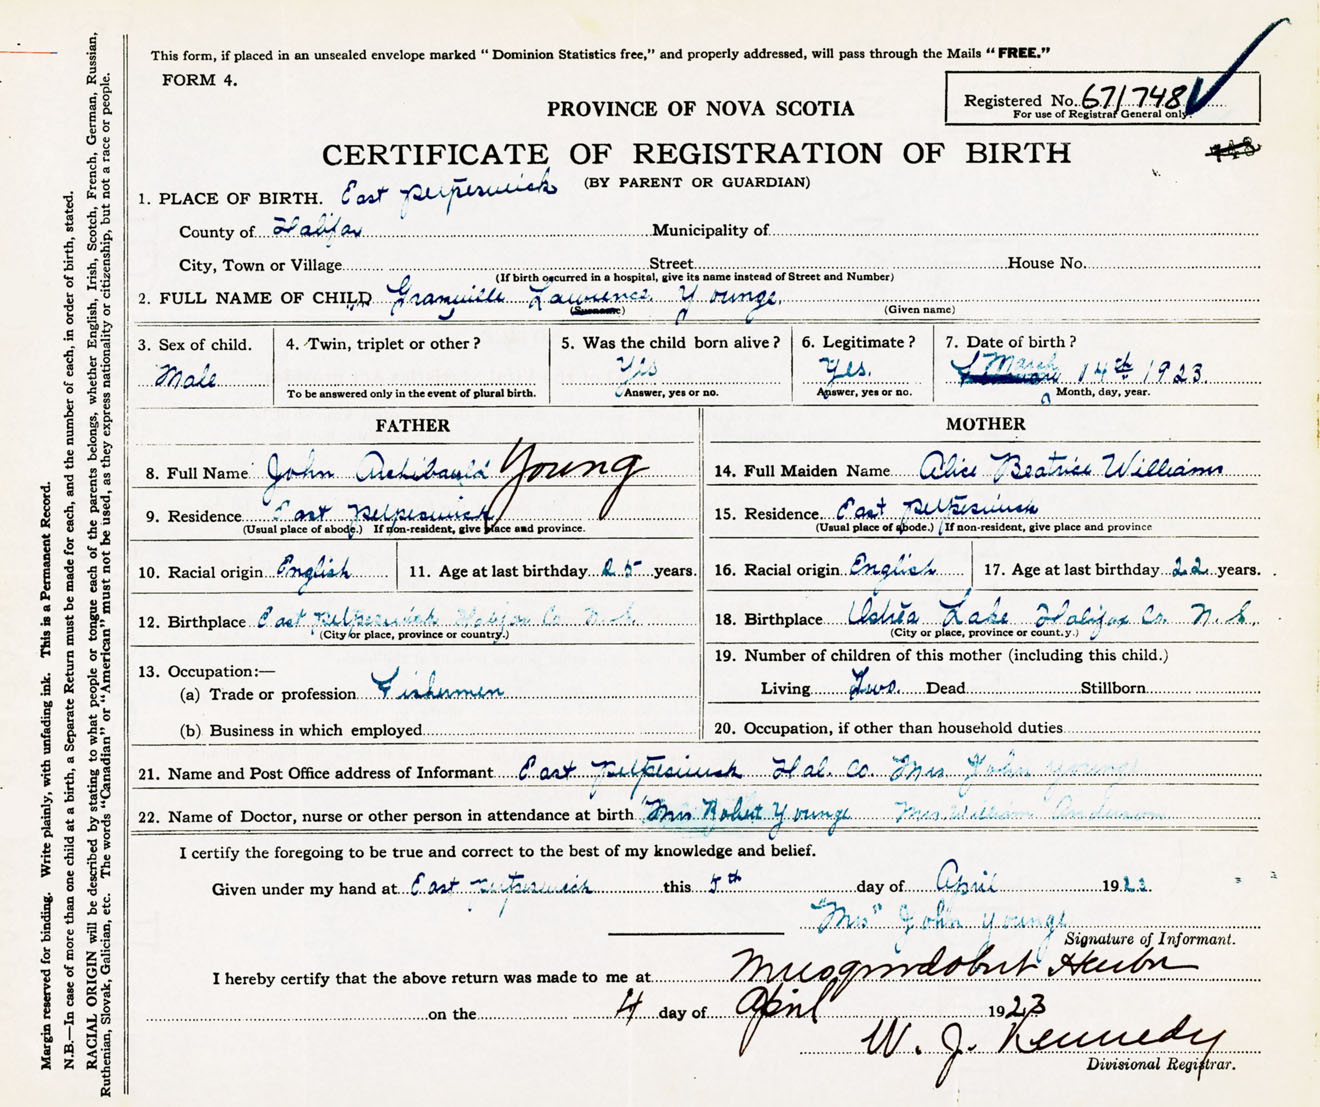 This form, if placed in an unsealed envelope marked “Dominion Statistics free,” and properly addressed, will pass through the Mails “FREE.”
FORM 4.
Registered No. 671748
For use of Registrar General only.
PROVINCE OF NOVA SCOTIA
748
CERTIFICATE OF REGISTRATION OF BIRTH
(BY PARENT OR GUARDIAN)
1. PLACE OF BIRTH. East petpeswick
County of Halifax Municipality of
City, Town or Village Street House No.
(If birth occurred in a hospital, give its name instead of Street and Number)
2. FULL NAME OF CHILD Granville Lawrence Younge.
(Surname) (Given name)
3. Sex of child. 4. Twin, triplet or other? 5. Was the child born alive? 6. Legitimate? 7. Date of birth?
Male Yis Yes. March 14th 1923.
To be answered only in the event of plural birth. Answer, yes or no. Answer, yes or no. Month, day, year.
FATHER
8. Full Name John Archibauld Young
9. Residence East petpeswick
(Usual place of abode.) If non-resident, give place and province.
10. Racial origin English 11. Age at last birthday 25 years.
12. Birthplace East petpeswick Halifax Co N.S.
(City or place, province or country.)
13. Occupation:—
(a) Trade or profession Fishermen
(b) Business in which employed
MOTHER
14. Full Maiden Name Alice Beatrice Williams
15. Residence East petpeswick
(Usual place of abode.) If non-resident, give place and province
16. Racial origin English 17. Age at last birthday 22 years.
18. Birthplace Ostrea Lake Halifax Co. N.S.
(City or place, province or county.)
19. Number of children of this mother (including this child.)
Living Two. Dead Stillborn
20. Occupation, if other than household duties
21. Name and Post Office address of Informant East petpeswick Hal. Co. Mrs John Younge
22. Name of Doctor, nurse or other person in attendance at birth Mrs Robert Younge Mrs William Anderson
I certify the foregoing to be true and correct to the best of my knowledge and belief.
Given under my hand at East petpeswick this 5th day of April 1923.
Mrs" John Younge
Signature of Informant.
I hereby certify that the above return was made to me at Musquodoboit Harbor
on the 4 day of April 1923
W. J. Kennedy
Divisional Registrar.
Margin reserved for binding. Write plainly, with unfading ink. This is a Permanent Record.
N.B.—In case of more than one child at a birth, a Separate Return must be made for each, and the number of each, in order of birth, stated.
RACIAL ORIGIN will be described by stating to what people or tongue each of the parents belongs, whether English, Irish, Scotch, French, German, Russian,
Ruthenian, Slovak, Galician, etc. The words “Canadian” or “American” must not be used, as they express nationality or citizenship, but not a race or people.